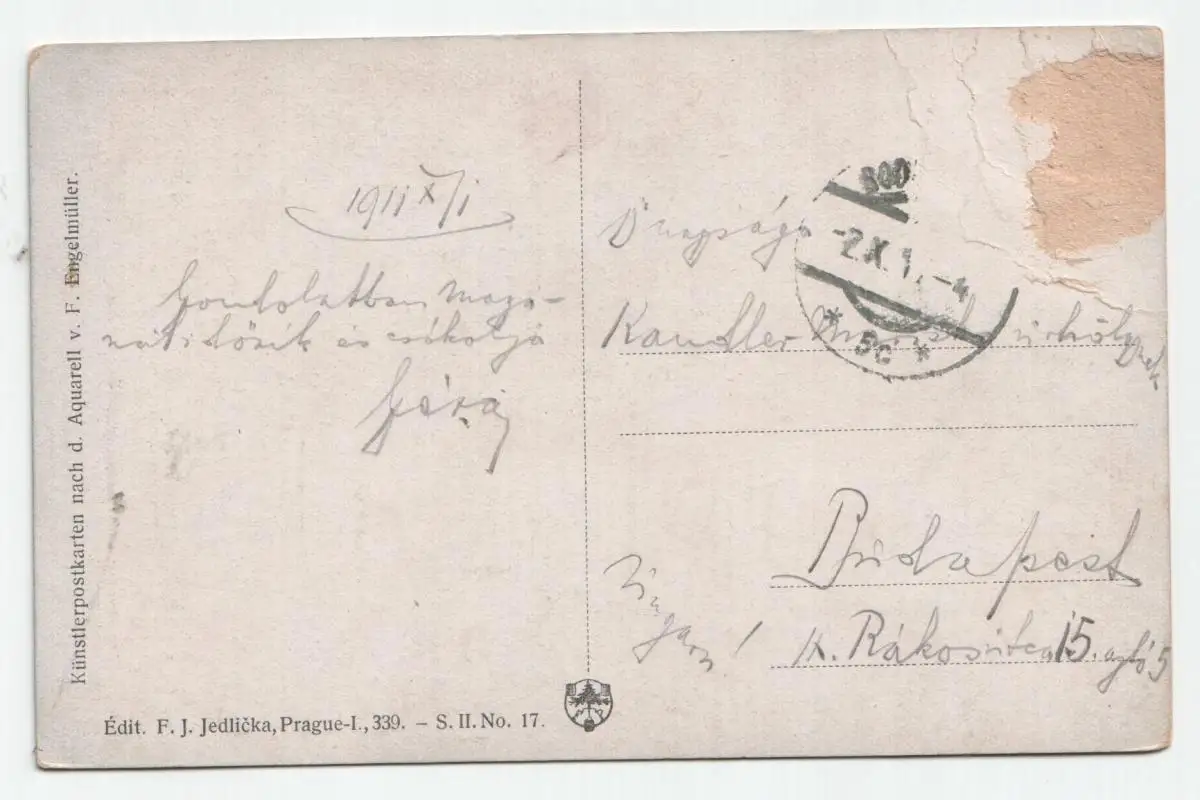 Künstlerpostkarten nach d. Aquarell v. F. Engelmüller.
1911 X/1
Gondolatban maga-
nál időzik és csókolja
Géza
Ő nagysága
Kandler úrhölgynek
Budapest
Rákos utca 15. ajtó 5
Ungarn!
2.X.1 -4
* 5c *
Édit. F. J. Jedlička, Prague-I., 339. – S. II. No. 17.